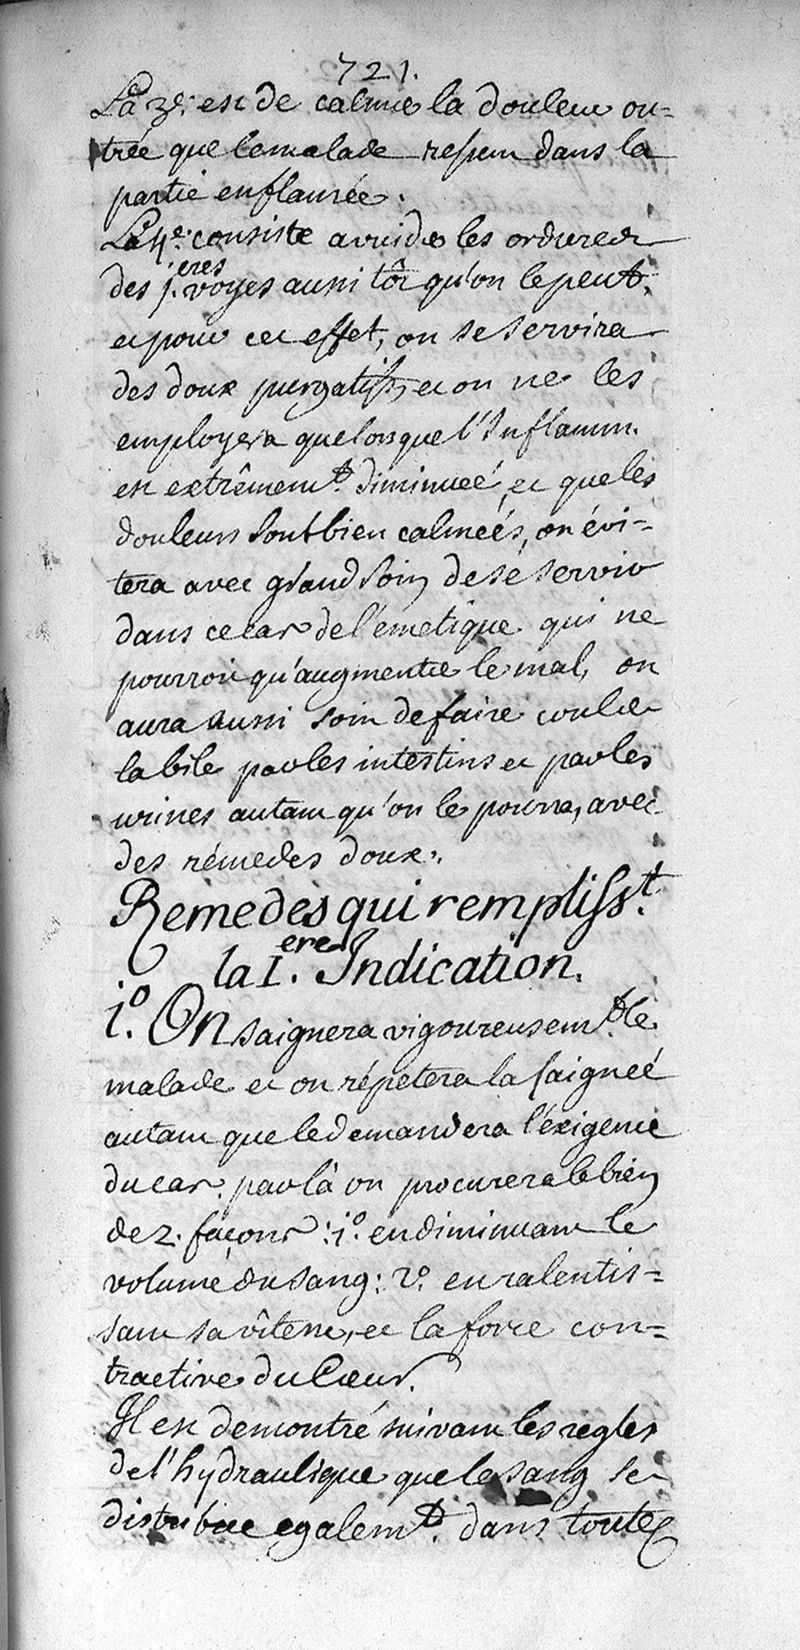 721.
La 3e. est de calmer la douleur ou-
trée que le malade ressent dans la
partie enflamée.
La 4e. consiste a vuider les ordures
des 1.eres voyes aussi tôt qu'on le peut.
et pour cet effet, on se servira
des doux purgatifs, et on ne les
employera que lorsque l'Inflamm.
est extrêmemt. diminueé, et que les
douleurs sont bien calmeés, on évi-
tera avec grand soin de sé servir
dans ce cas de l'émetique qui ne
pourroit qu'augmenter le mal, on
aura aussi soin de faire couler
la bile par les intestins et par les
urines autant qu'on le pourra, avec
des rémedes doux.
Remedes qui remplisst.
la I.ere Indication.
1.o On saignera vigoureusemt. le
malade et on répetera la saigneé
autant que le demandera l'éxigence
du cas. par là on procurera le bien
de 2. façons: 1.o en diminuant le
volume du sang: 2.o en ralentis-
sant sa vîtesse, et la force con-
tractive du Coeur.
Il est demontré suivant les regles
de l'hydraulique que le sang se
distribue egalemt. dans toutes